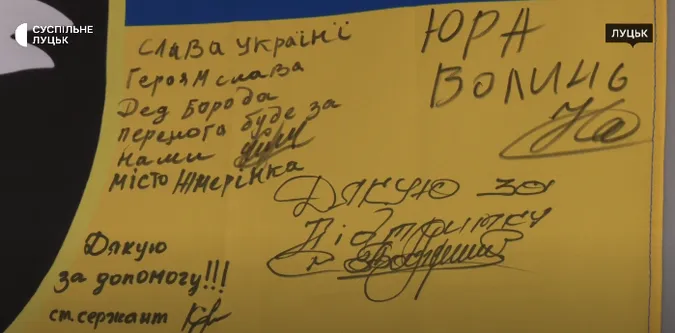 СУСПІЛЬНЕ
ЛУЦЬК
ЛУЦЬК
Слава Україні
Героям слава
Дед Борода
перемога буде за
нами
місто Жмерінка
ЮРА
ВОЛИНЬ
Дякую за
підтримку
Дякую
за допомогу!!!
ст. сержант